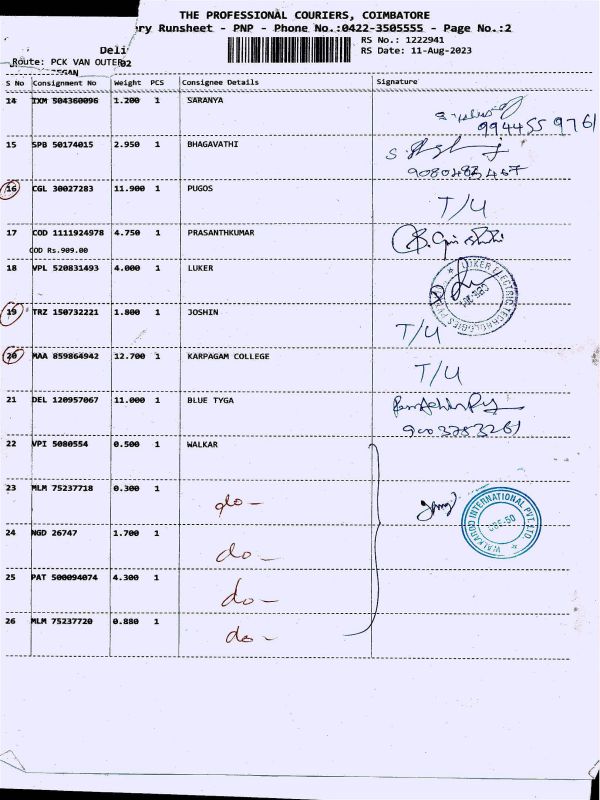 THE PROFESSIONAL COURIERS, COIMBATORE
ry Runsheet - PNP - Phone No.:0422-3505555 - Page No.:2
Deli
RS No.: 1222941
RS Date: 11-Aug-2023
Route: PCK VAN OUTER02
S No Consignment No Weight PCS Consignee Details Signature
14 IXM 504360096 1.200 1 SARANYA
9944559761
15 SPB 50174015 2.950 1 BHAGAVATHI
16 CGL 30027283 11.900 1 PUGOS T/U
17 COD 1111924978 4.750 1 PRASANTHKUMAR
COD Rs.909.00
18 VPL 520831493 4.000 1 LUKER
LUKER ELECTRIC TECHNOLOGIES PVT
19 TRZ 150732221 1.800 1 JOSHIN T/U
20 MAA 859864942 12.700 1 KARPAGAM COLLEGE T/U
21 DEL 120957067 11.000 1 BLUE TYGA
9003753261
22 VPI 5080554 0.500 1 WALKAR
23 MLM 75237718 0.300 1 do-
WALKAROO INTERNATIONAL PVT.LTD
CBE-50
24 NGD 26747 1.700 1 do-
25 PAT 500094074 4.300 1 do-
26 MLM 75237720 0.880 1 do-